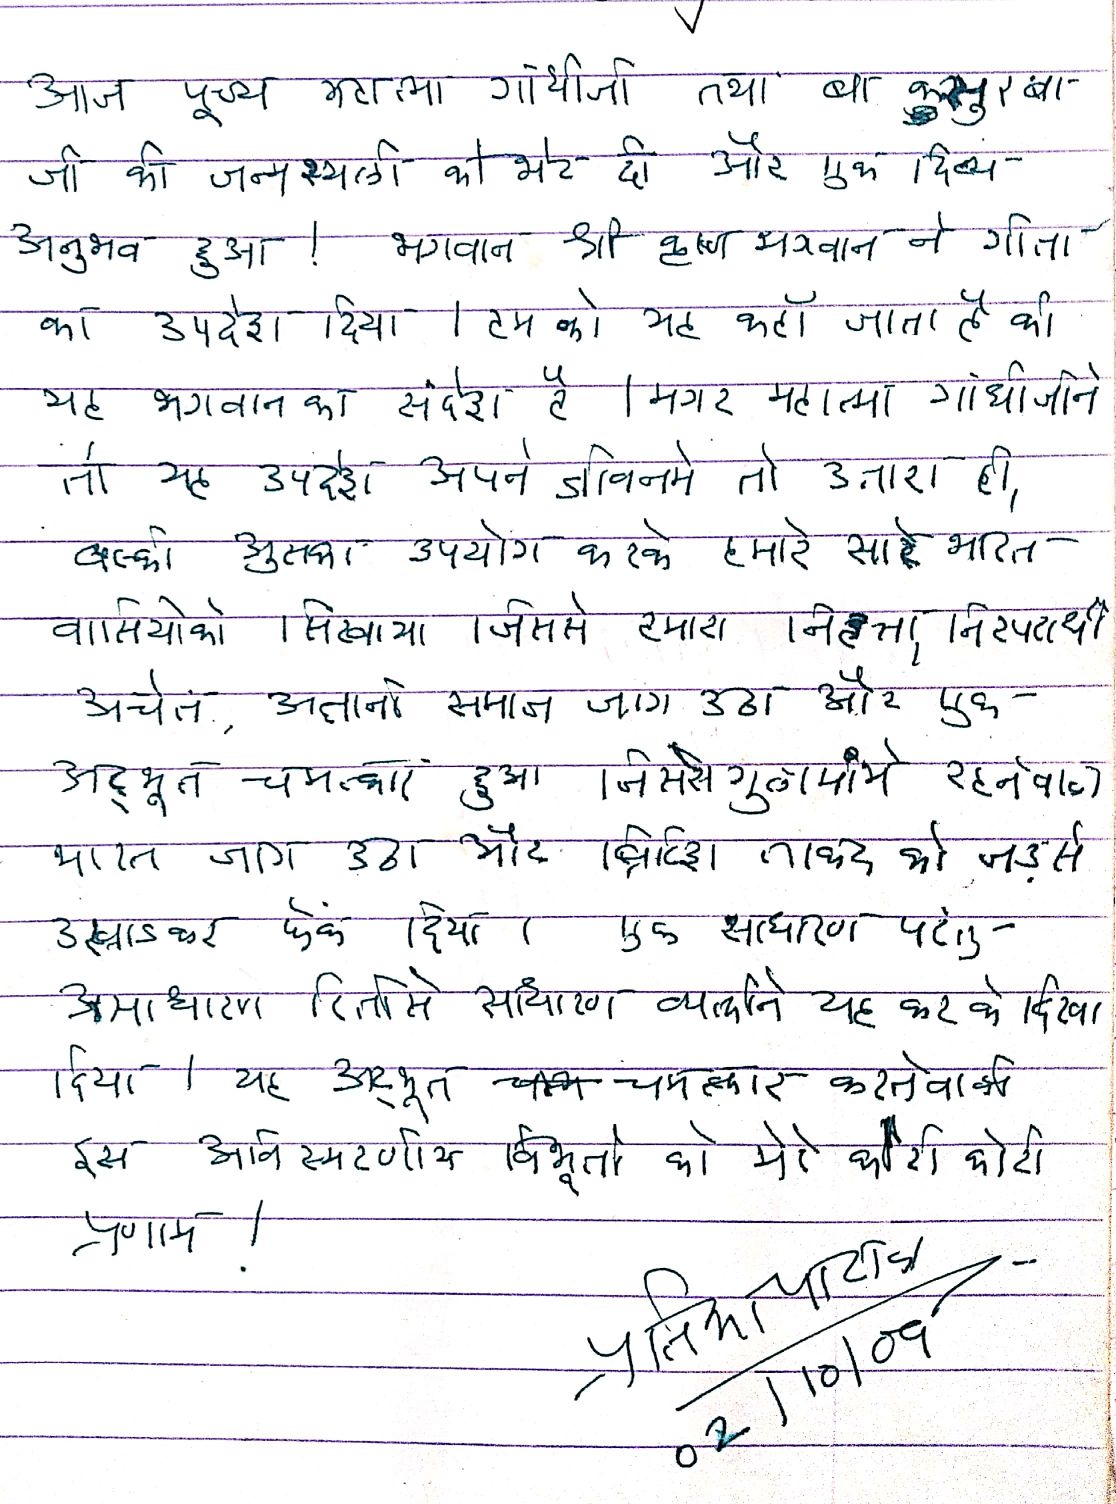 आज पूज्य महात्मा गांधीजी तथा बा कस्तुरबा
जी की जन्मस्थली को भेट दी और एक दिव्य
अनुभव हुआ ! भगवान श्री कृष्ण भगवान ने गीता
का उपदेश दिया । हम को यह कहाँ जाता है की
यह भगवान का संदेश है । मगर महात्मा गांधीजीने
तो यह उपदेश अपने जीवनमे तो उतारा ही,
बल्की उसका उपयोग करके हमारे सारे भारत
वासियोको सिखाया जिससे हमारा निहत्ता, निरपराधी
अचेत, अज्ञानी समाज जाग उठा और एक
अद्भूत चमत्कार हुआ जिससे गुलामीमे रहनेवाला
भारत जाग उठा और ब्रिटिश ताकद को जड़से
उखाडकर फेंक दिया । एक साधारण परंतु
असाधारण रितीसे साधारण व्यक्तीने यह कर के दिखा
दिया । यह अद्भूत चमत्कार करनेवाली
इस अविस्मरणीय विभूती को मेरे कोटी कोटी
प्रणाम !
प्रतिभा पाटील
02/10/09